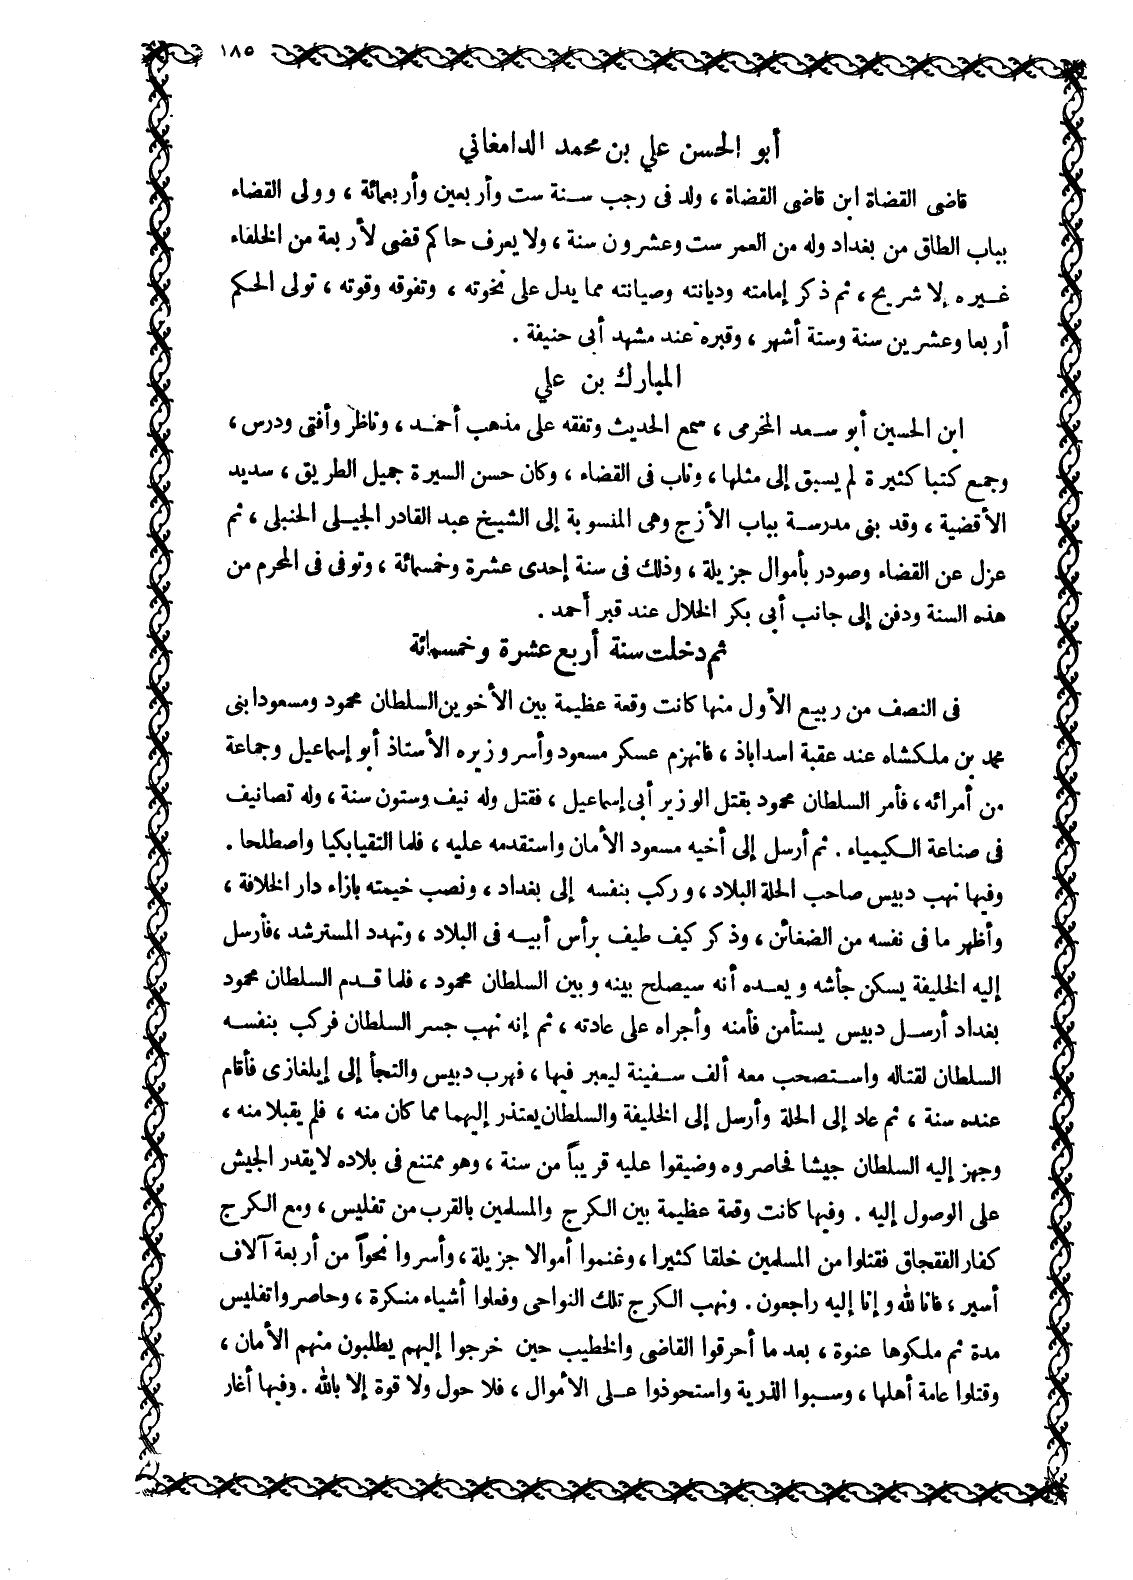 ١٨٥
أبو الحسن علي بن محمد الدامغاني
قاضى القضاة ابن قاضى القضاة ، ولد فى رجب سنة ست وأربعين وأربعمائة ، وولى القضاء
بباب الطاق من بغداد وله من العمر ست وعشرون سنة ، ولا يعرف حاكم قضى لأربعة من الخلفاء
غيره إلا شريح ، ثم ذكر إمامته وديانته وصيانته مما يدل على نخوته ، وتفوقه وقوته ، تولى الحكم
أربعا وعشرين سنة وستة أشهر ، وقبره عند مشهد أبى حنيفة .
المبارك بن علي
ابن الحسين أبو سعد المخرمى ، سمع الحديث وتفقه على مذهب أحمد ، وناظر وأفتى ودرس ،
وجمع كتبا كثيرة لم يسبق إلى مثلها ، وناب فى القضاء ، وكان حسن السيرة جميل الطريق ، سديد
الأقضية ، وقد بنى مدرسة بباب الأزج وهى المنسوبة إلى الشيخ عبد القادر الجيلى الحنبلى ، ثم
عزل عن القضاء وصودر بأموال جزيلة ، وذلك فى سنة إحدى عشرة وخمسمائة ، وتوفى فى المحرم من
هذه السنة ودفن إلى جانب أبى بكر الخلال عند قبر أحمد .
ثم دخلت سنة أربع عشرة وخمسمائة
فى النصف من ربيع الأول منها كانت وقعة عظيمة بين الأخوين السلطان محمود ومسعود ابنى
محمد بن ملكشاه عند عقبة اسداباذ ، فانهزم عسكر مسعود وأسر وزيره الأستاذ أبو إسماعيل وجماعة
من أمرائه ، فأمر السلطان محمود بقتل الوزير أبى إسماعيل ، فقتل وله نيف وستون سنة ، وله تصانيف
فى صناعة الكيمياء . ثم أرسل إلى أخيه مسعود الأمان واستقدمه عليه ، فلما التقيا بكيا واصطلحا .
وفيها نهب دبيس صاحب الحلة البلاد ، وركب بنفسه إلى بغداد ، ونصب خيمته بازاء دار الخلافة ،
وأظهر ما فى نفسه من الضغائن ، وذكر كيف طيف برأس أبيه فى البلاد ، وتهدد المسترشد ، فأرسل
إليه الخليفة يسكن جأشه ويعده أنه سيصلح بينه وبين السلطان محمود ، فلما قدم السلطان محمود
بغداد أرسل دبيس يستأمن فأمنه وأجراه على عادته ، ثم إنه نهب جسر السلطان فركب بنفسه
السلطان لقتاله واستصحب معه ألف سفينة ليعبر فيها ، فهرب دبيس والتجأ إلى إيلغازى فأقام
عنده سنة ، ثم عاد إلى الحلة وأرسل إلى الخليفة والسلطان يعتذر إليهما مما كان منه ، فلم يقبلا منه ،
وجهز إليه السلطان جيشا فحاصروه وضيقوا عليه قريباً من سنة ، وهو ممتنع فى بلاده لا يقدر الجيش
على الوصول إليه . وفيها كانت وقعة عظيمة بين الكرج والمسلمين بالقرب من تفليس ، ومع الكرج
كفار الفقجاق فقتلوا من المسلمين خلقا كثيرا ، وغنموا أموالا جزيلة ، وأسروا نحواً من أربعة آلاف
أسير ، فانا لله وإنا إليه راجعون . ونهب الكرج تلك النواحى وفعلوا أشياء منكرة ، وحاصروا تفليس
مدة ثم ملكوها عنوة ، بعد ما أحرقوا القاضى والخطيب حين خرجوا إليهم يطلبون منهم الأمان ،
وقتلوا عامة أهلها ، وسبوا الذرية واستحوذوا على الأموال ، فلا حول ولا قوة إلا بالله . وفيها أغار